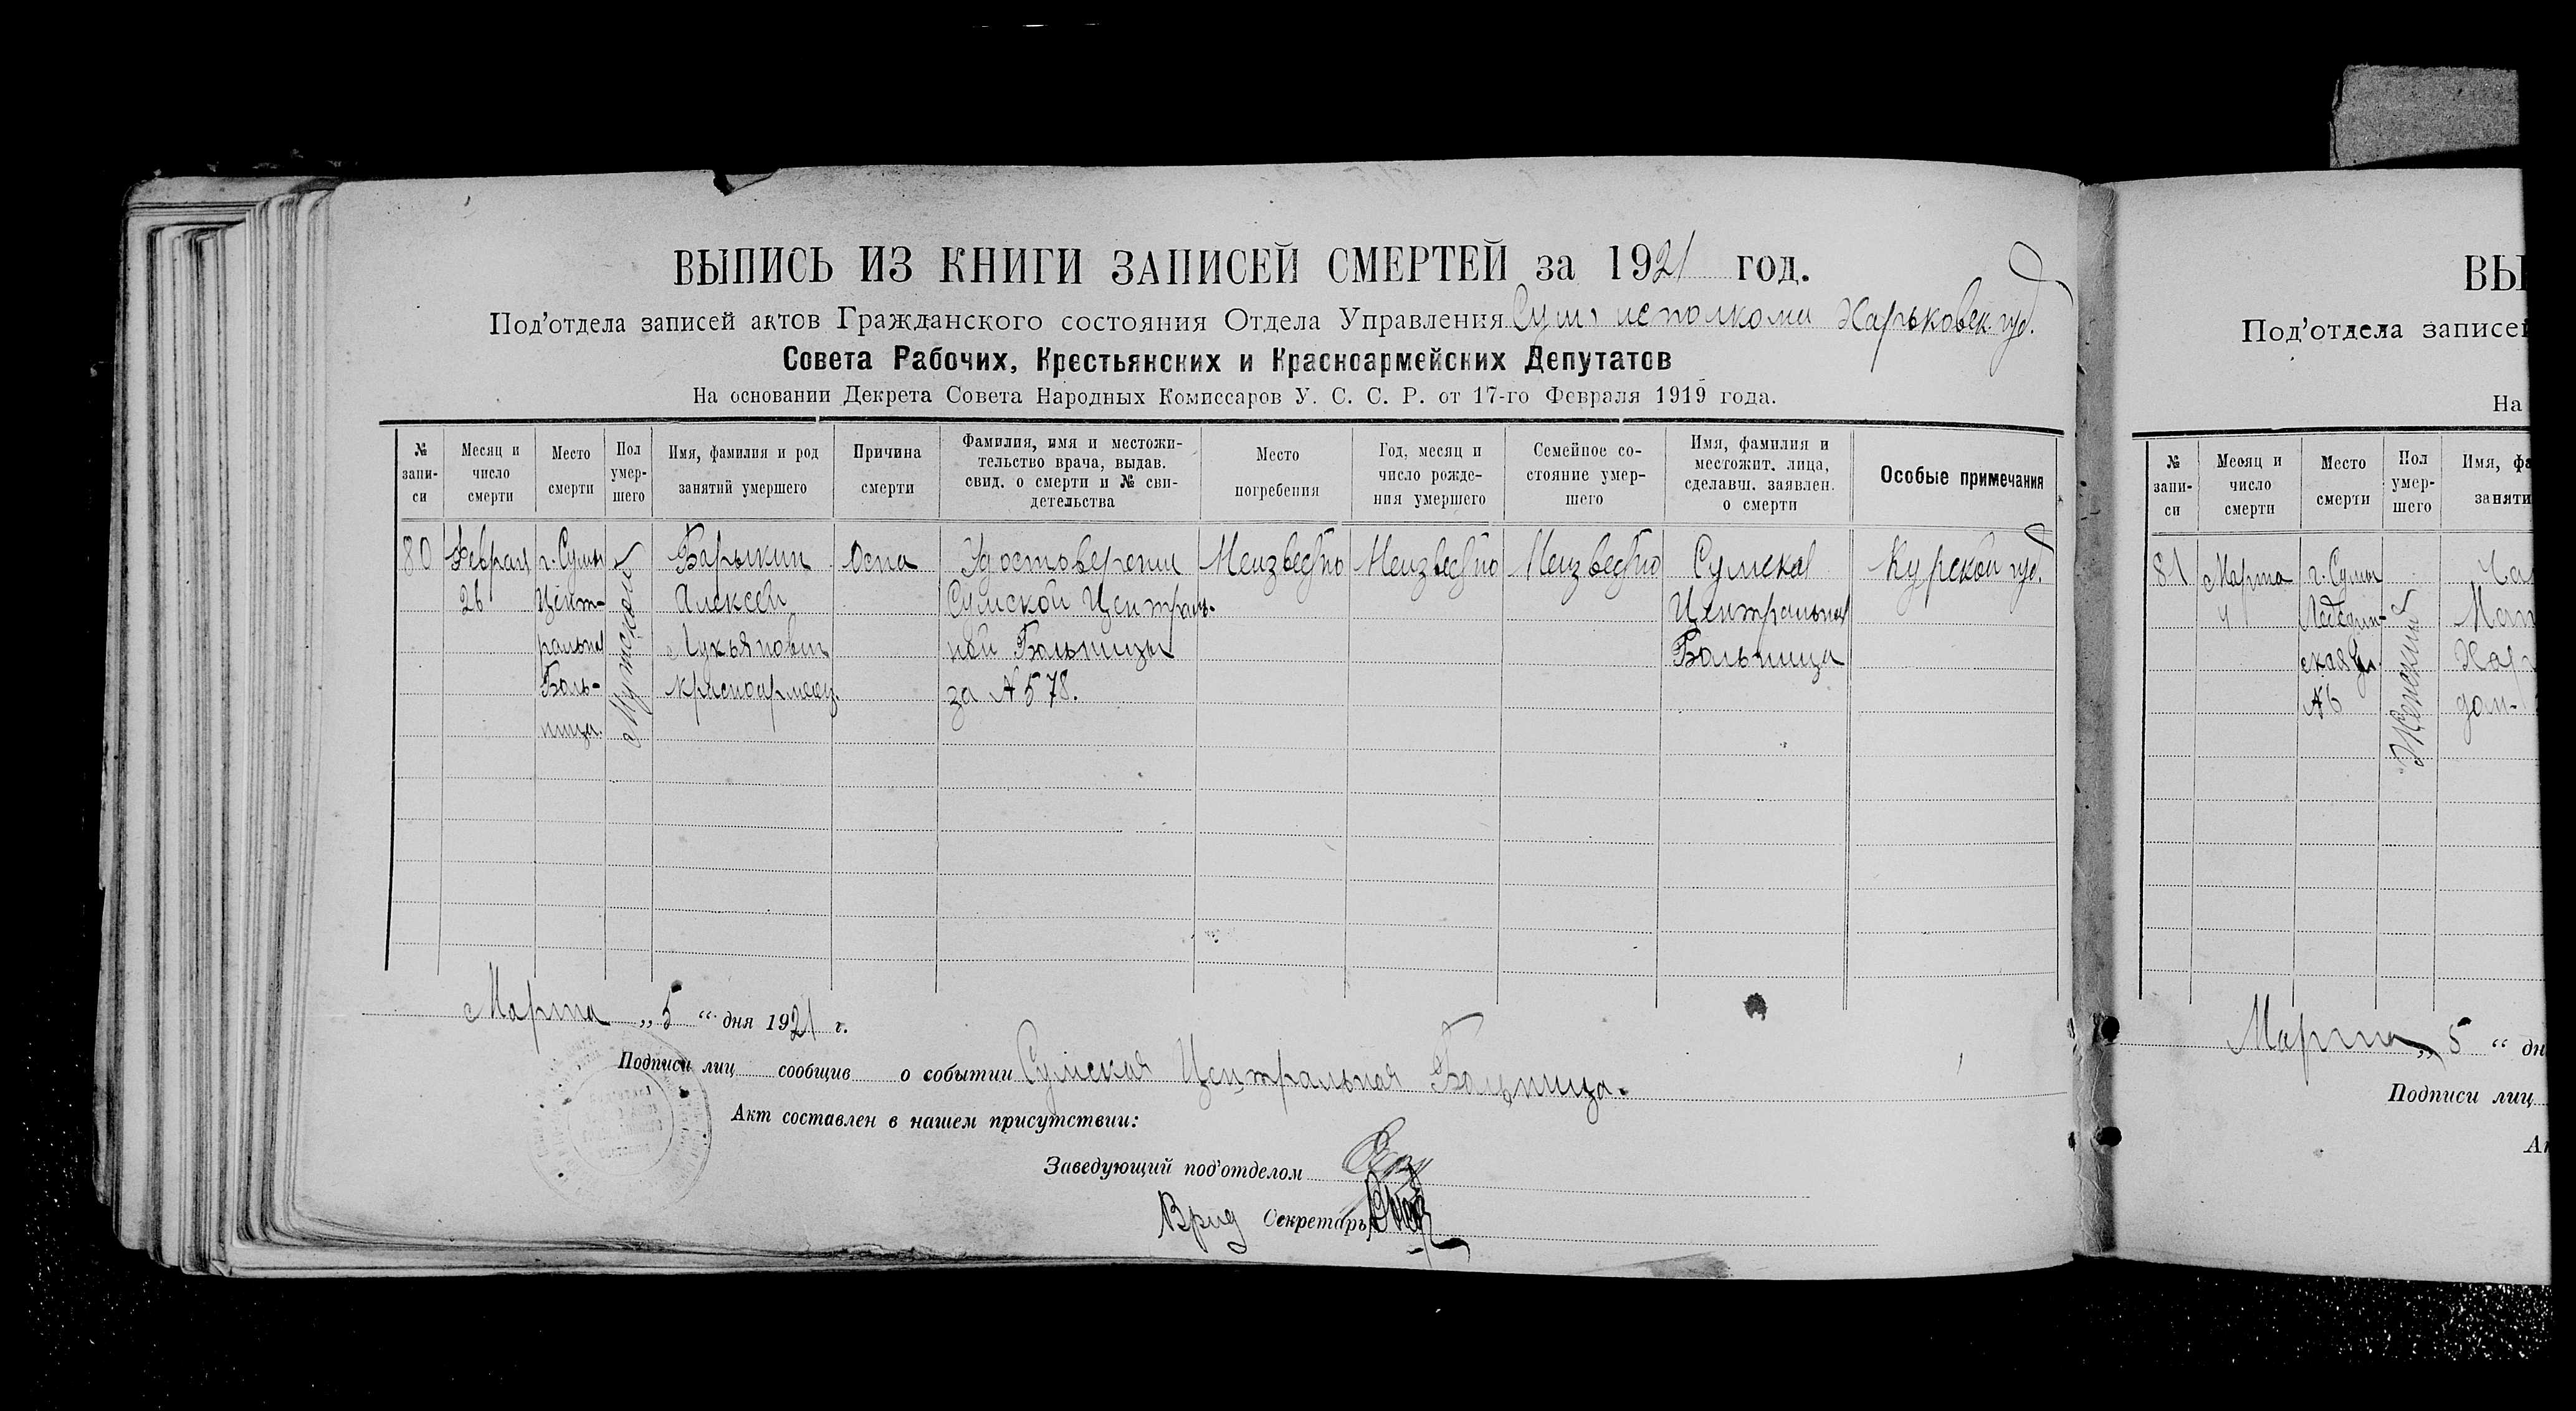 ВЫПИСЬ ИЗ КНИГИ ЗАПИСЕЙ СМЕРТЕЙ за 1921 год.
Под'отдела записей актов Гражданского состояния Отдела Управления Сум. исполкома Харьковск. губ.
Совета Рабочих, Крестьянских и Красноармейских Депутатов
На основании Декрета Совета Народных Комиссаров У. С. С. Р. от 17-го Февраля 1919 года.
№ запи-си
Месяц и число смерти
Место смерти
Пол умер-шего
Имя, фамилия и род занятий умершего
Причина смерти
Фамилия, имя и местожи-тельство врача, выдав. свид. о смерти и № сви-детельства
Место погребения
Год, месяц и число рожде-ния умершего
Семейное со-стояние умер-шего
Имя, фамилия и местожит. лица, сделавш. заявлен. о смерти
Особые примечания
80
Февраля
26
г. Сумы
Цент-
ральная
Боль-
ница.
Мужской
Барыкин
Алексей
Лукьянович
красноармеец.
Оспа
Удостоверение
Сумской Централь-
ной Больницы
за № 578.
Неизвестно
Неизвестно
Неизвестно
Сумская
Центральная
Больница
Курской губ.
Марта „5“ дня 1921 г.
Подписи лиц сообщив о событии Сумская Центральная Больница.
Акт составлен в нашем присутствии:
Заведующий под'отделом
Врид Секретарь
ВЫ
Под'отдела записей
На
№ запи-си
Месяц и число смерти
Место смерти
Пол умер-шего
Имя, фа
заняти
81
Марта
4
г. Сумы
Лебедин-
ская ул.
№ 6
Женский
дом-
Марта „5“ дн
Подписи лиц
Ак